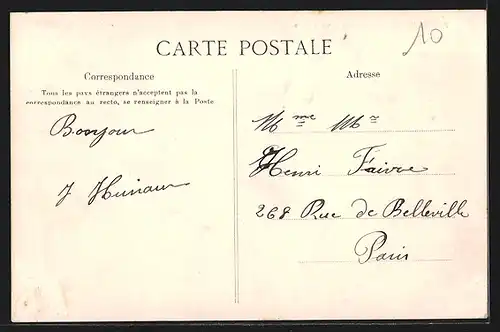 10
CARTE POSTALE
Correspondance
Tous les pays étrangers n'acceptent pas la
correspondance au recto, se renseigner à la Poste
Bonjour
Adresse
Mme Mr
Henri Faivre
268 Rue de Belleville
Paris